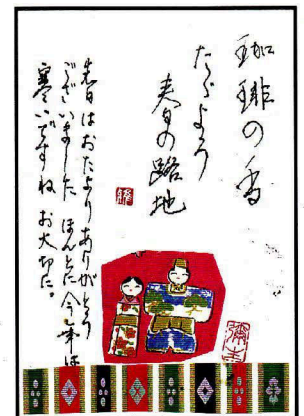 珈琲の香
たゞよう
春の路地
先日はおたよりありがとう
ございました ほんとに今年は
寒いですね お大切に。